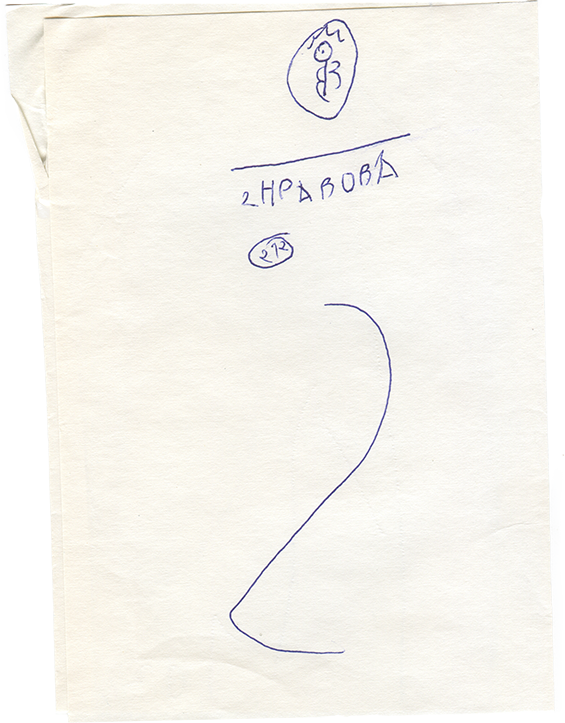 2НРАВОВА
272
2